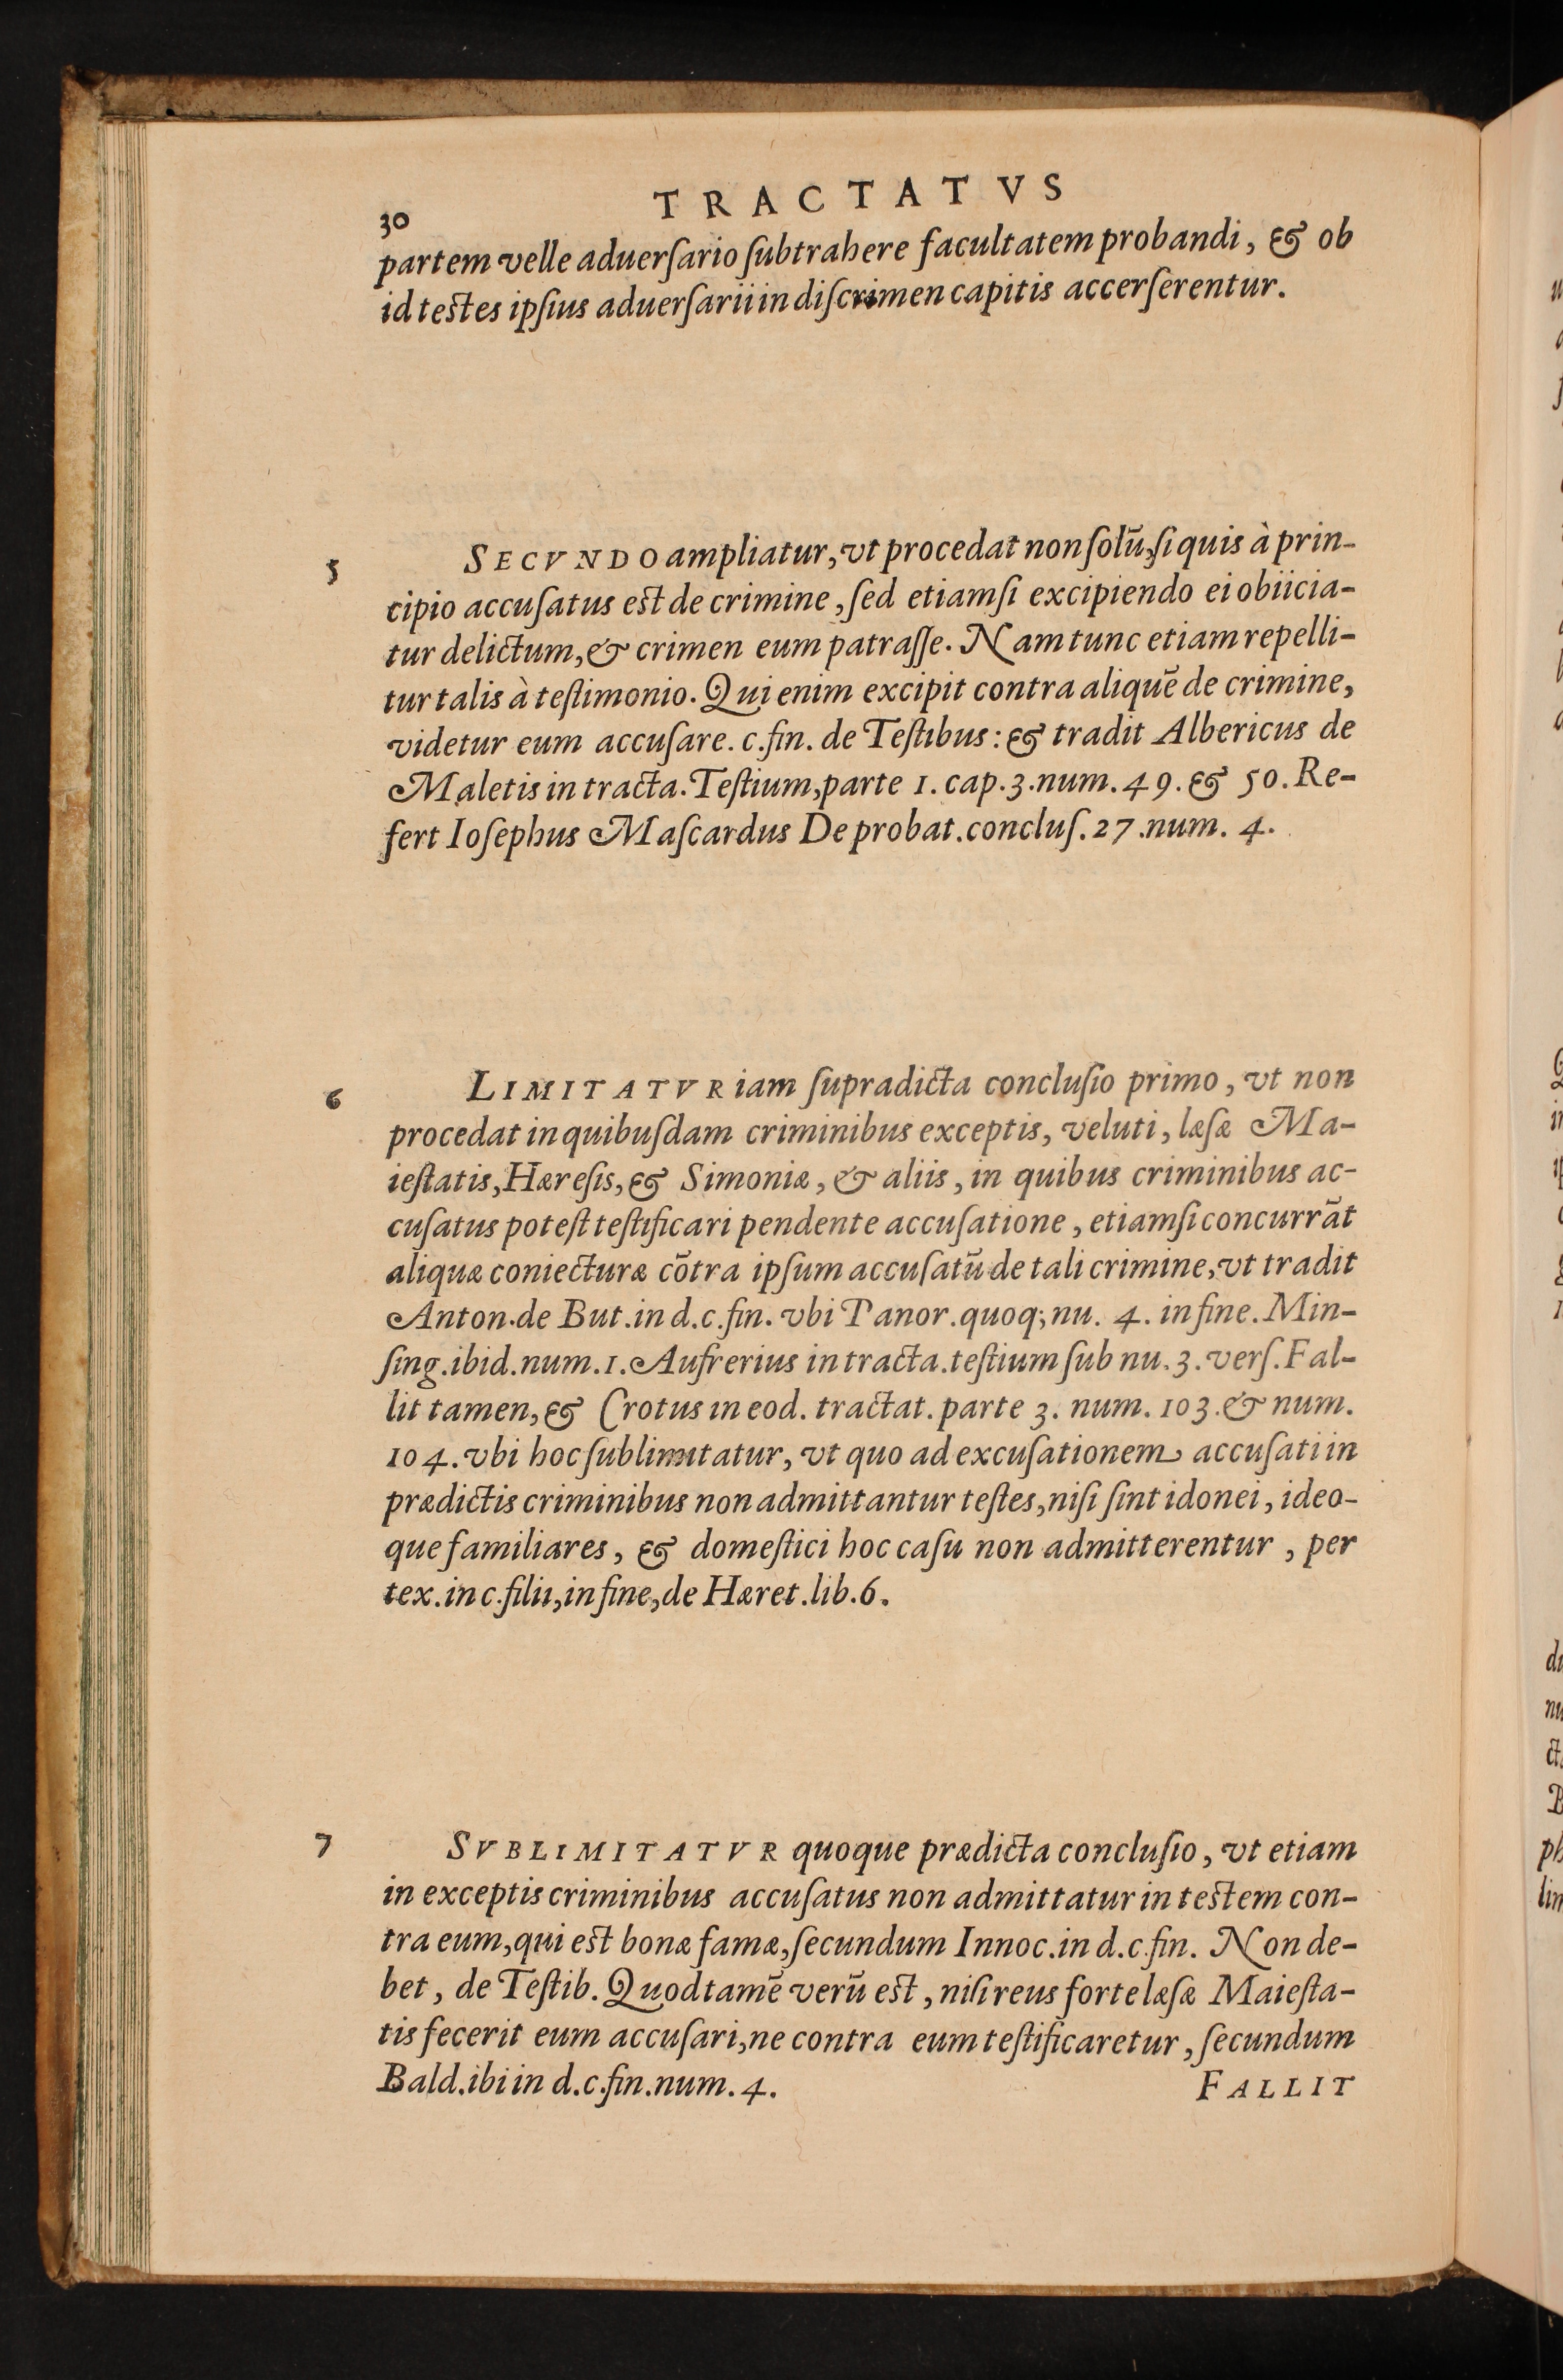 30 TRACTATVS
partem velle aduerſario ſubtrahere facultatem probandi, & ob
id teſtes ipſius aduerſarii in diſcrimen capitis accerſerentur.
5 SECVNDO ampliatur, vt procedat non ſolũ, ſi quis à prin-
cipio accuſatus eſt de crimine, ſed etiamſi excipiendo ei obiicia-
tur delictum, & crimen eum patraſſe. Nam tunc etiam repelli-
tur talis à teſtimonio. Qui enim excipit contra aliquẽ de crimine,
videtur eum accuſare. c.fin. de Teſtibus: & tradit Albericus de
Maletis in tracta. Teſtium, parte 1. cap. 3. num. 49. & 50. Re-
fert Ioſephus Maſcardus De probat. concluſ. 27. num. 4.
6 LIMITATVR iam ſupradicta concluſio primo, vt non
procedat in quibuſdam criminibus exceptis, veluti, læſæ Ma-
ieſtatis, Hæreſis, & Simoniæ, & aliis, in quibus criminibus ac-
cuſatus poteſt teſtificari pendente accuſatione, etiamſi concurrãt
aliquæ coniecturæ cõtra ipſum accuſatũ de tali crimine, vt tradit
Anton. de But. in d. c. fin. vbi Panor. quoq; nu. 4. in fine. Min-
ſing. ibid. num. 1. Aufrerius in tracta. teſtium ſub nu. 3. verſ. Fal-
lit tamen, & Crotus in eod. tractat. parte 3. num. 103. & num.
104. vbi hoc ſublimitatur, vt quo ad excuſationem accuſati in
prædictis criminibus non admittantur teſtes, niſi ſint idonei, ideo-
que familiares, & domeſtici hoc caſu non admitterentur, per
tex. in c. filii, in fine, de Hæret. lib. 6.
7 SVBLIMITATVR quoque prædicta concluſio, vt etiam
in exceptis criminibus accuſatus non admittatur in teſtem con-
tra eum, qui eſt bonæ famæ, ſecundum Innoc. in d. c. fin. Non de-
bet, de Teſtib. Quod tamẽ verũ eſt, niſi reus forte læſæ Maieſta-
tis fecerit eum accuſari, ne contra eum teſtificaretur, ſecundum
Bald. ibi in d. c. fin. num. 4. FALLIT